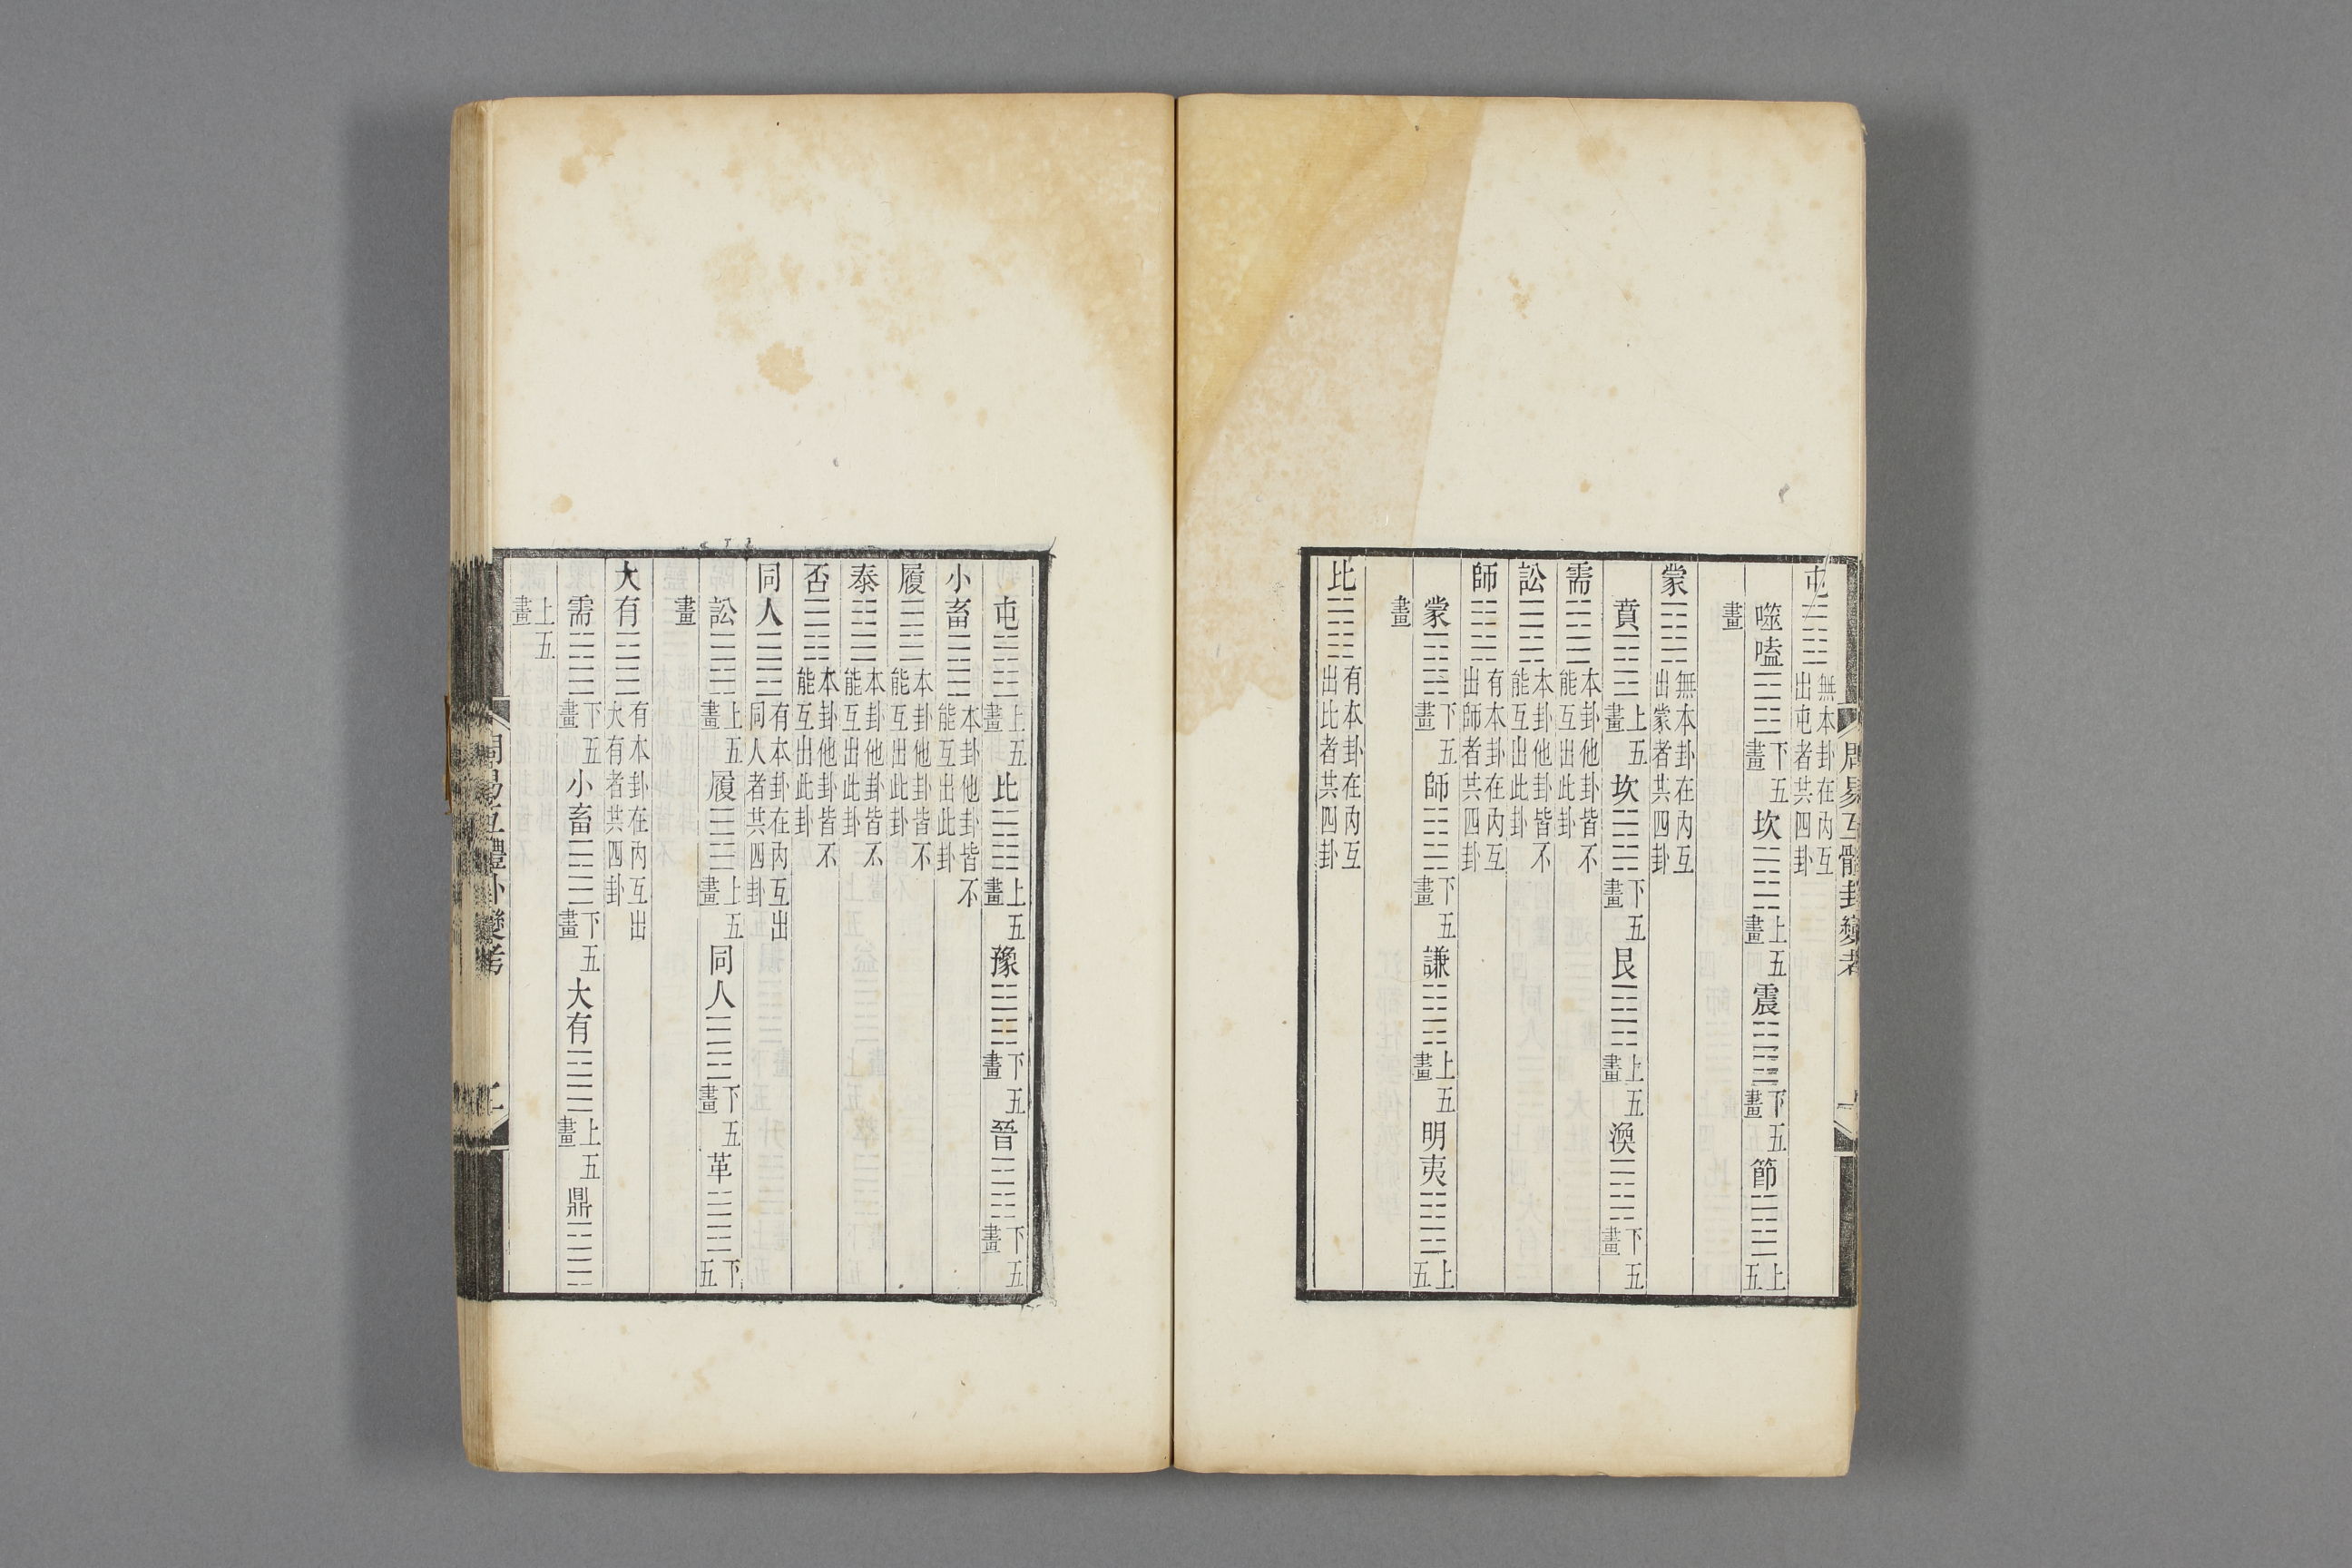 周易互體卦變考
屯䷂無本卦在內互出屯者共四卦
噬嗑䷔下五畫坎䷜上五畫震䷲下五畫節䷻上五
畫
蒙䷃無本卦在內互出蒙者共四卦
賁䷕上五畫坎䷜下五畫艮䷳上五畫渙䷺下五畫
需䷄本卦他卦皆不能互出此卦
訟䷅本卦他卦皆不能互出此卦
師䷆有本卦在內互出師者共四卦
蒙䷃下五畫師䷆下五畫謙䷎上五畫明夷䷣上五
畫
比䷇有本卦在內互出比者共四卦
屯䷂上五畫比䷇上五畫豫䷏下五畫晉䷢下五畫
小畜䷈本卦他卦皆不能互出此卦
履䷉本卦他卦皆不能互出此卦
泰䷊本卦他卦皆不能互出此卦
否䷋本卦他卦皆不能互出此卦
同人䷌有本卦在內互出同人者共四卦
訟䷅上五畫履䷉上五畫同人䷌下五畫革䷰下五
畫
大有䷍有本卦在內互出大有者共四卦
需䷄下五畫小畜䷈下五畫大有䷍上五畫鼎䷱
上五畫
周易互體卦變考